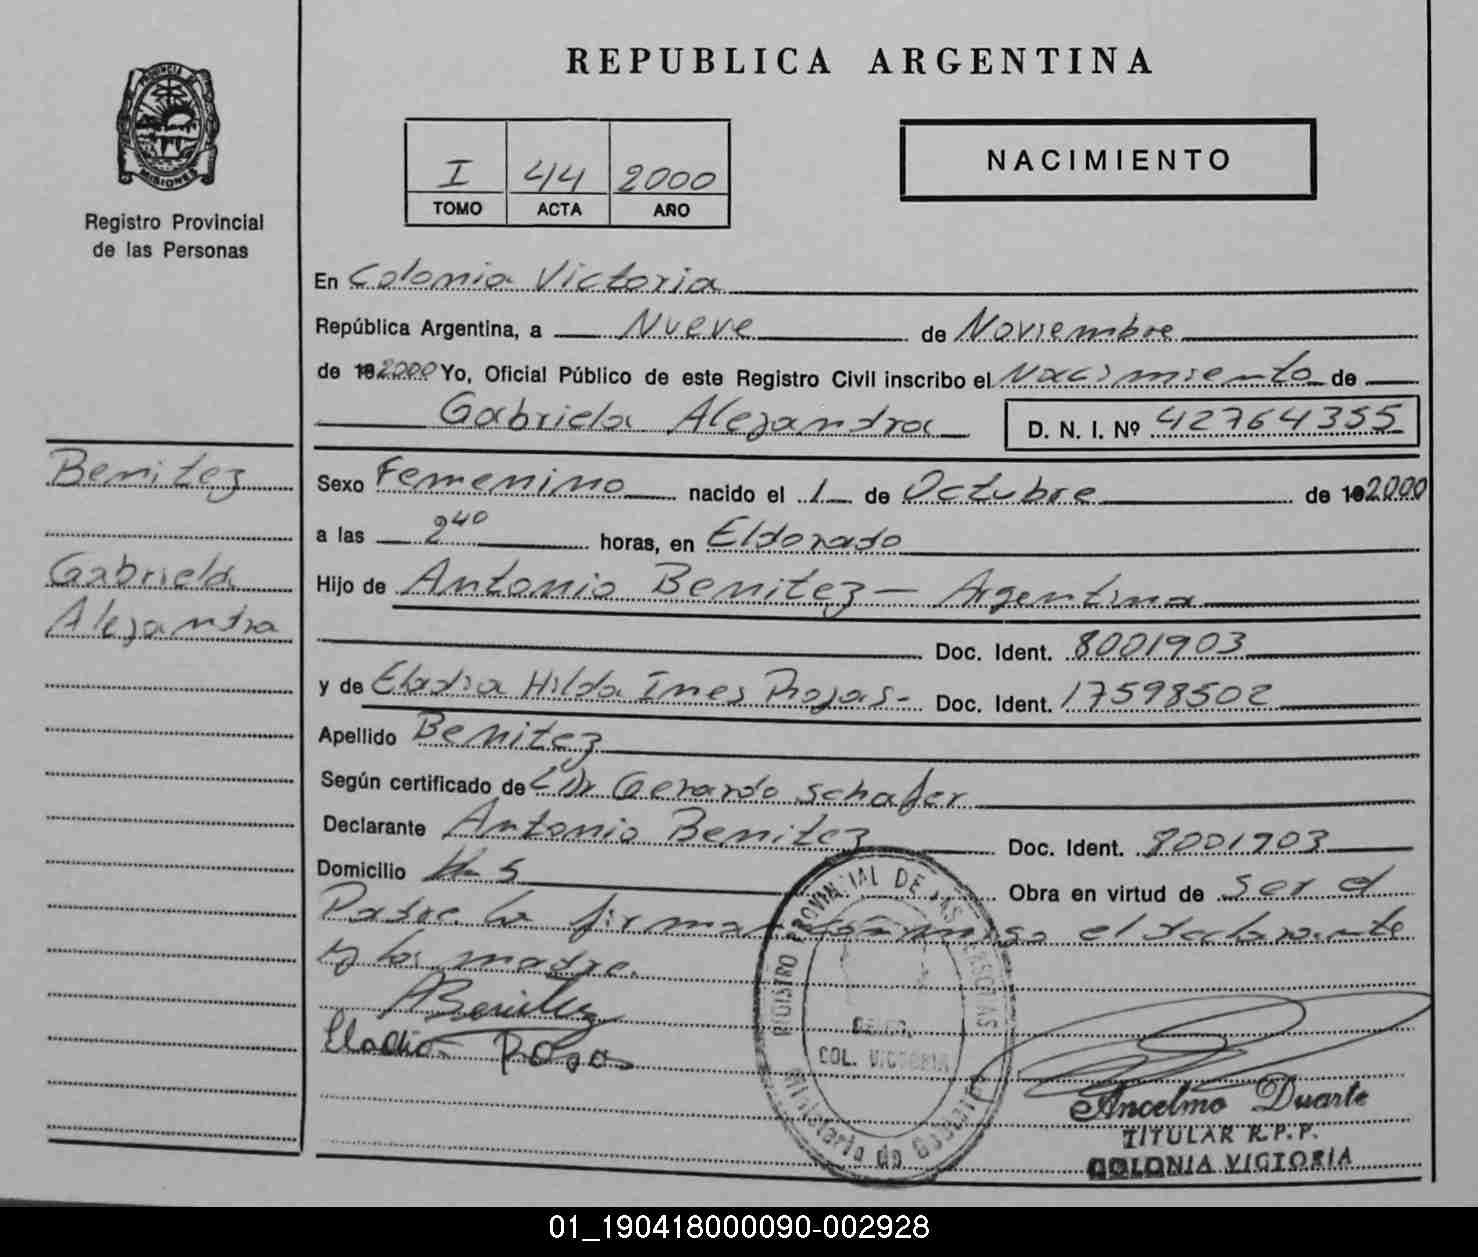 REPUBLICA ARGENTINA
PROVINCIA DE
MISIONES
Registro Provincial
de las Personas
I 44 2000
TOMO ACTA AÑO
NACIMIENTO
En Colonia Victoria
República Argentina, a Nueve de Noviembre
de 192000 Yo, Oficial Público de este Registro Civil inscribo el Nacimiento de
Gabriela Alejandra D. N. I. Nº 42764355
Benitez
Gabriela
Alejandra
Sexo Femenino nacido el 1 de Octubre de 192000
a las 2 40 horas, en Eldorado
Hijo de Antonio Benitez — Argentina
Doc. Ident. 8001903
y de Eladia Hilda Ines Rojas - Doc. Ident. 17598502
Apellido Benitez
Según certificado de Dr Gerardo Schafer
Declarante Antonio Benitez Doc. Ident. 8001903
Domicilio 5 Obra en virtud de ser el
Padre la firman conmigo el declarante
y la madre.
ABenitez
Eladia Rojas
REGISTRO PROVINCIAL DE LAS PERSONAS
COL. VICTORIA
Ministerio de Gobierno
Ancelmo Duarte
TITULAR R.P.P.
COLONIA VICTORIA
01_190418000090-002928